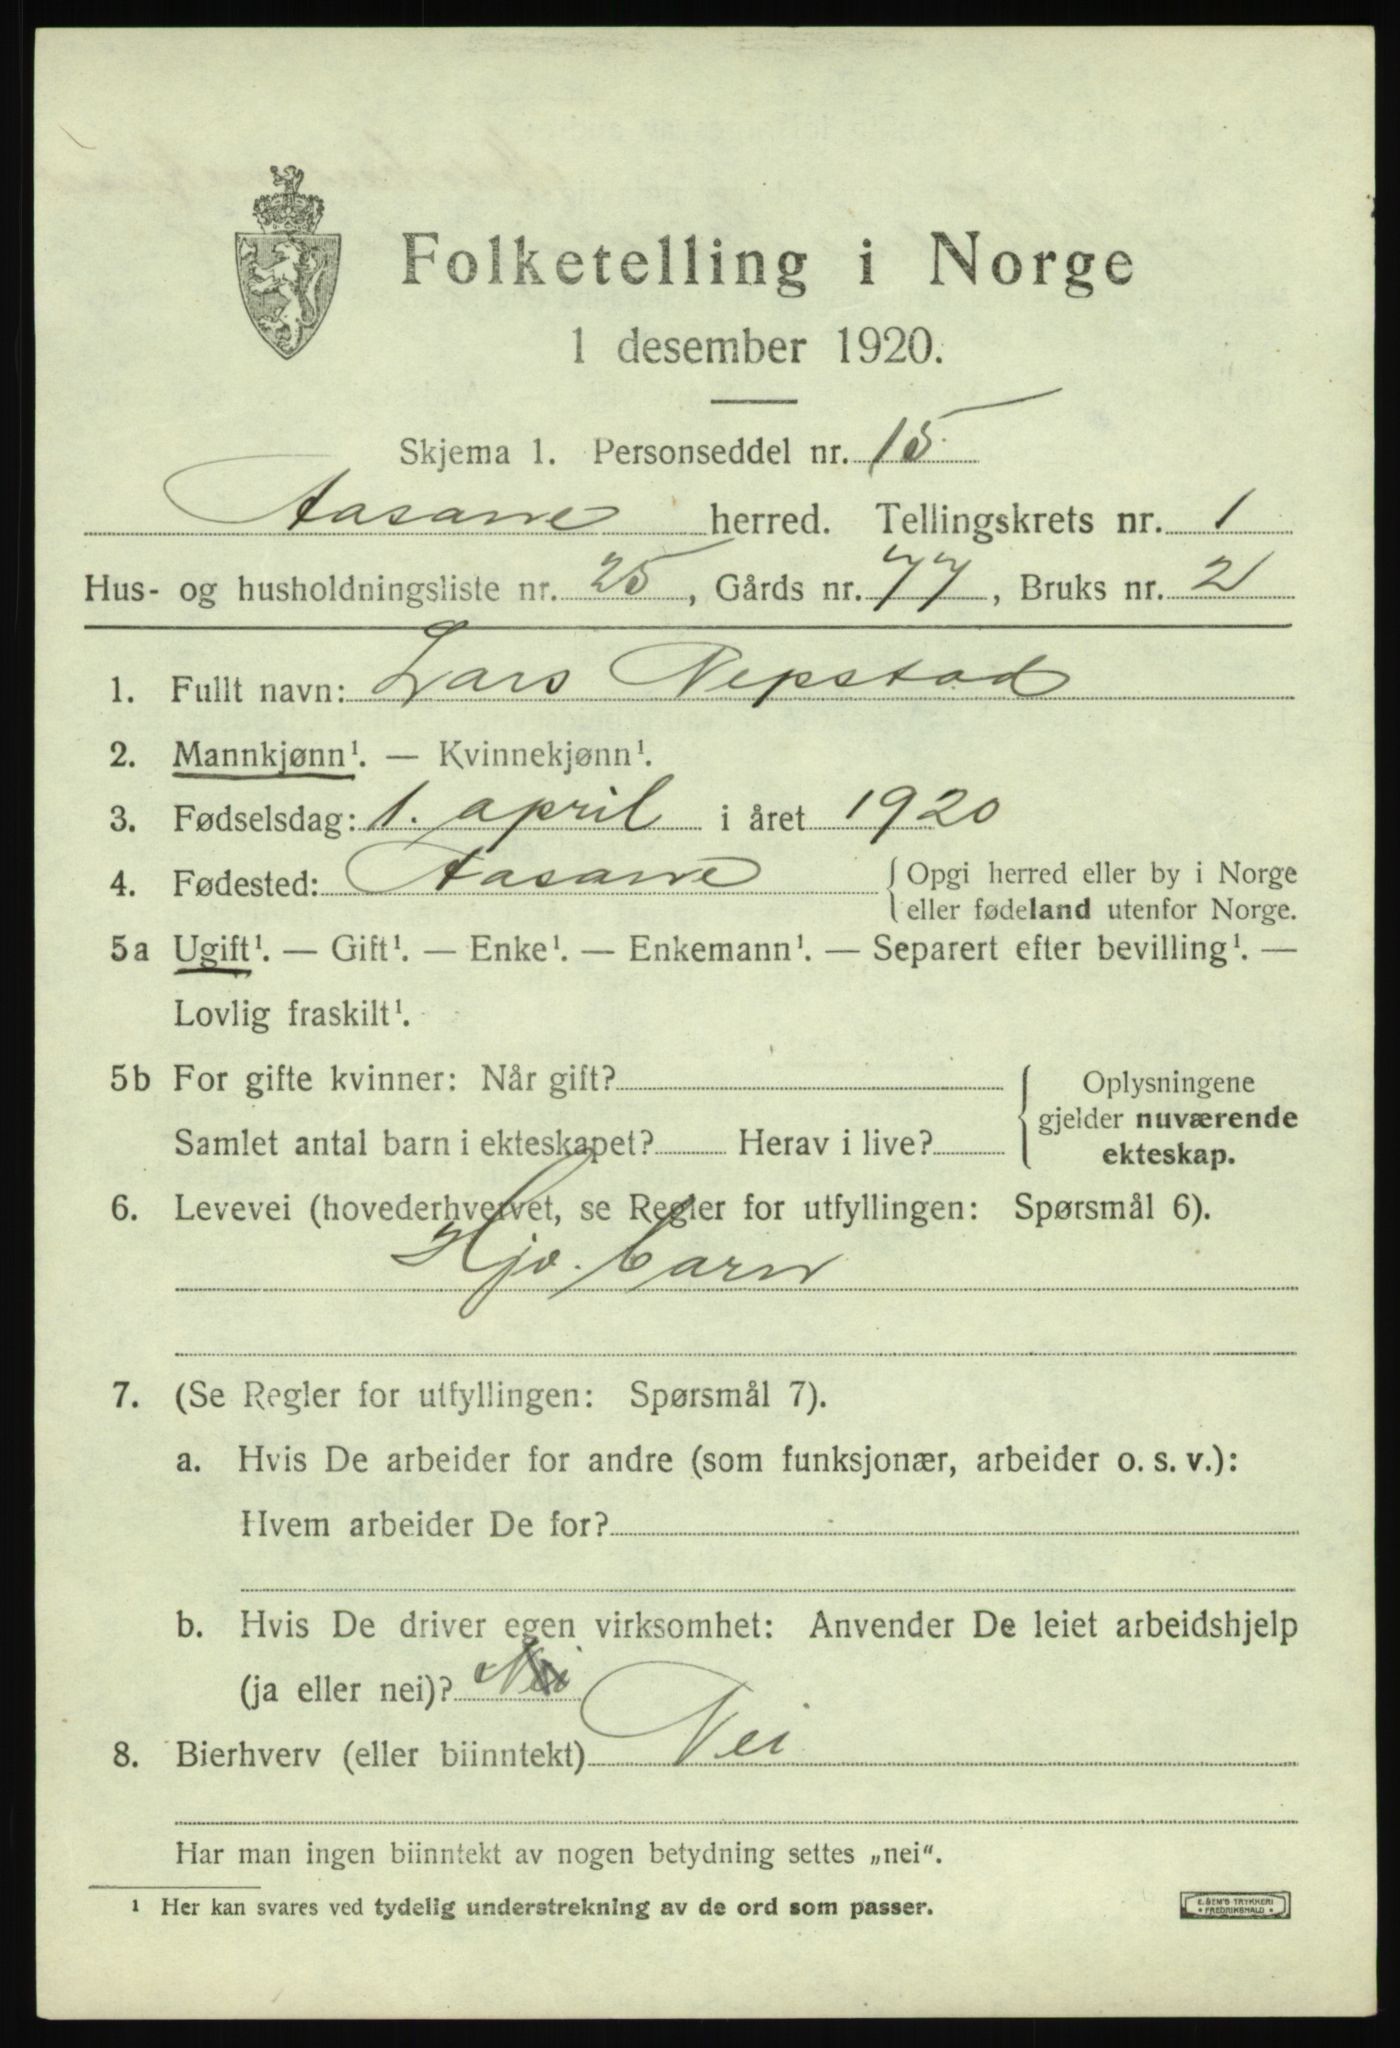 Folketelling i Norge
1 desember 1920.
Skjema 1. Personseddel nr. 15
Aasane herred. Tellingskrets nr. 1
Hus- og husholdningsliste nr. 25, Gårds nr. 77, Bruks nr. 2
1. Fullt navn: Lars Nepstad
2. Mannkjønn¹. — Kvinnekjønn¹.
3. Fødselsdag: 1. april i året 1920
4. Fødested: Aasane { Opgi herred eller by i Norge
eller fødeland utenfor Norge.
5a Ugift¹. — Gift¹. — Enke¹. — Enkemann¹. — Separert efter bevilling¹. —
Lovlig fraskilt¹.
5b For gifte kvinner: Når gift? { Oplysningene
gjelder nuværende
Samlet antal barn i ekteskapet? Herav i live? ekteskap.
6. Levevei (hovederhvervet, se Regler for utfyllingen: Spørsmål 6).
Hjv. barn
7. (Se Regler for utfyllingen: Spørsmål 7).
a. Hvis De arbeider for andre (som funksjonær, arbeider o. s. v.):
Hvem arbeider De for?
b. Hvis De driver egen virksomhet: Anvender De leiet arbeidshjelp
(ja eller nei)? Nei
8. Bierhverv (eller biinntekt) Nei
Har man ingen biinntekt av nogen betydning settes „nei“.
¹ Her kan svares ved tydelig understrekning av de ord som passer.
E. SEM'S TRYKKERI
* FREDRIKSHALD *